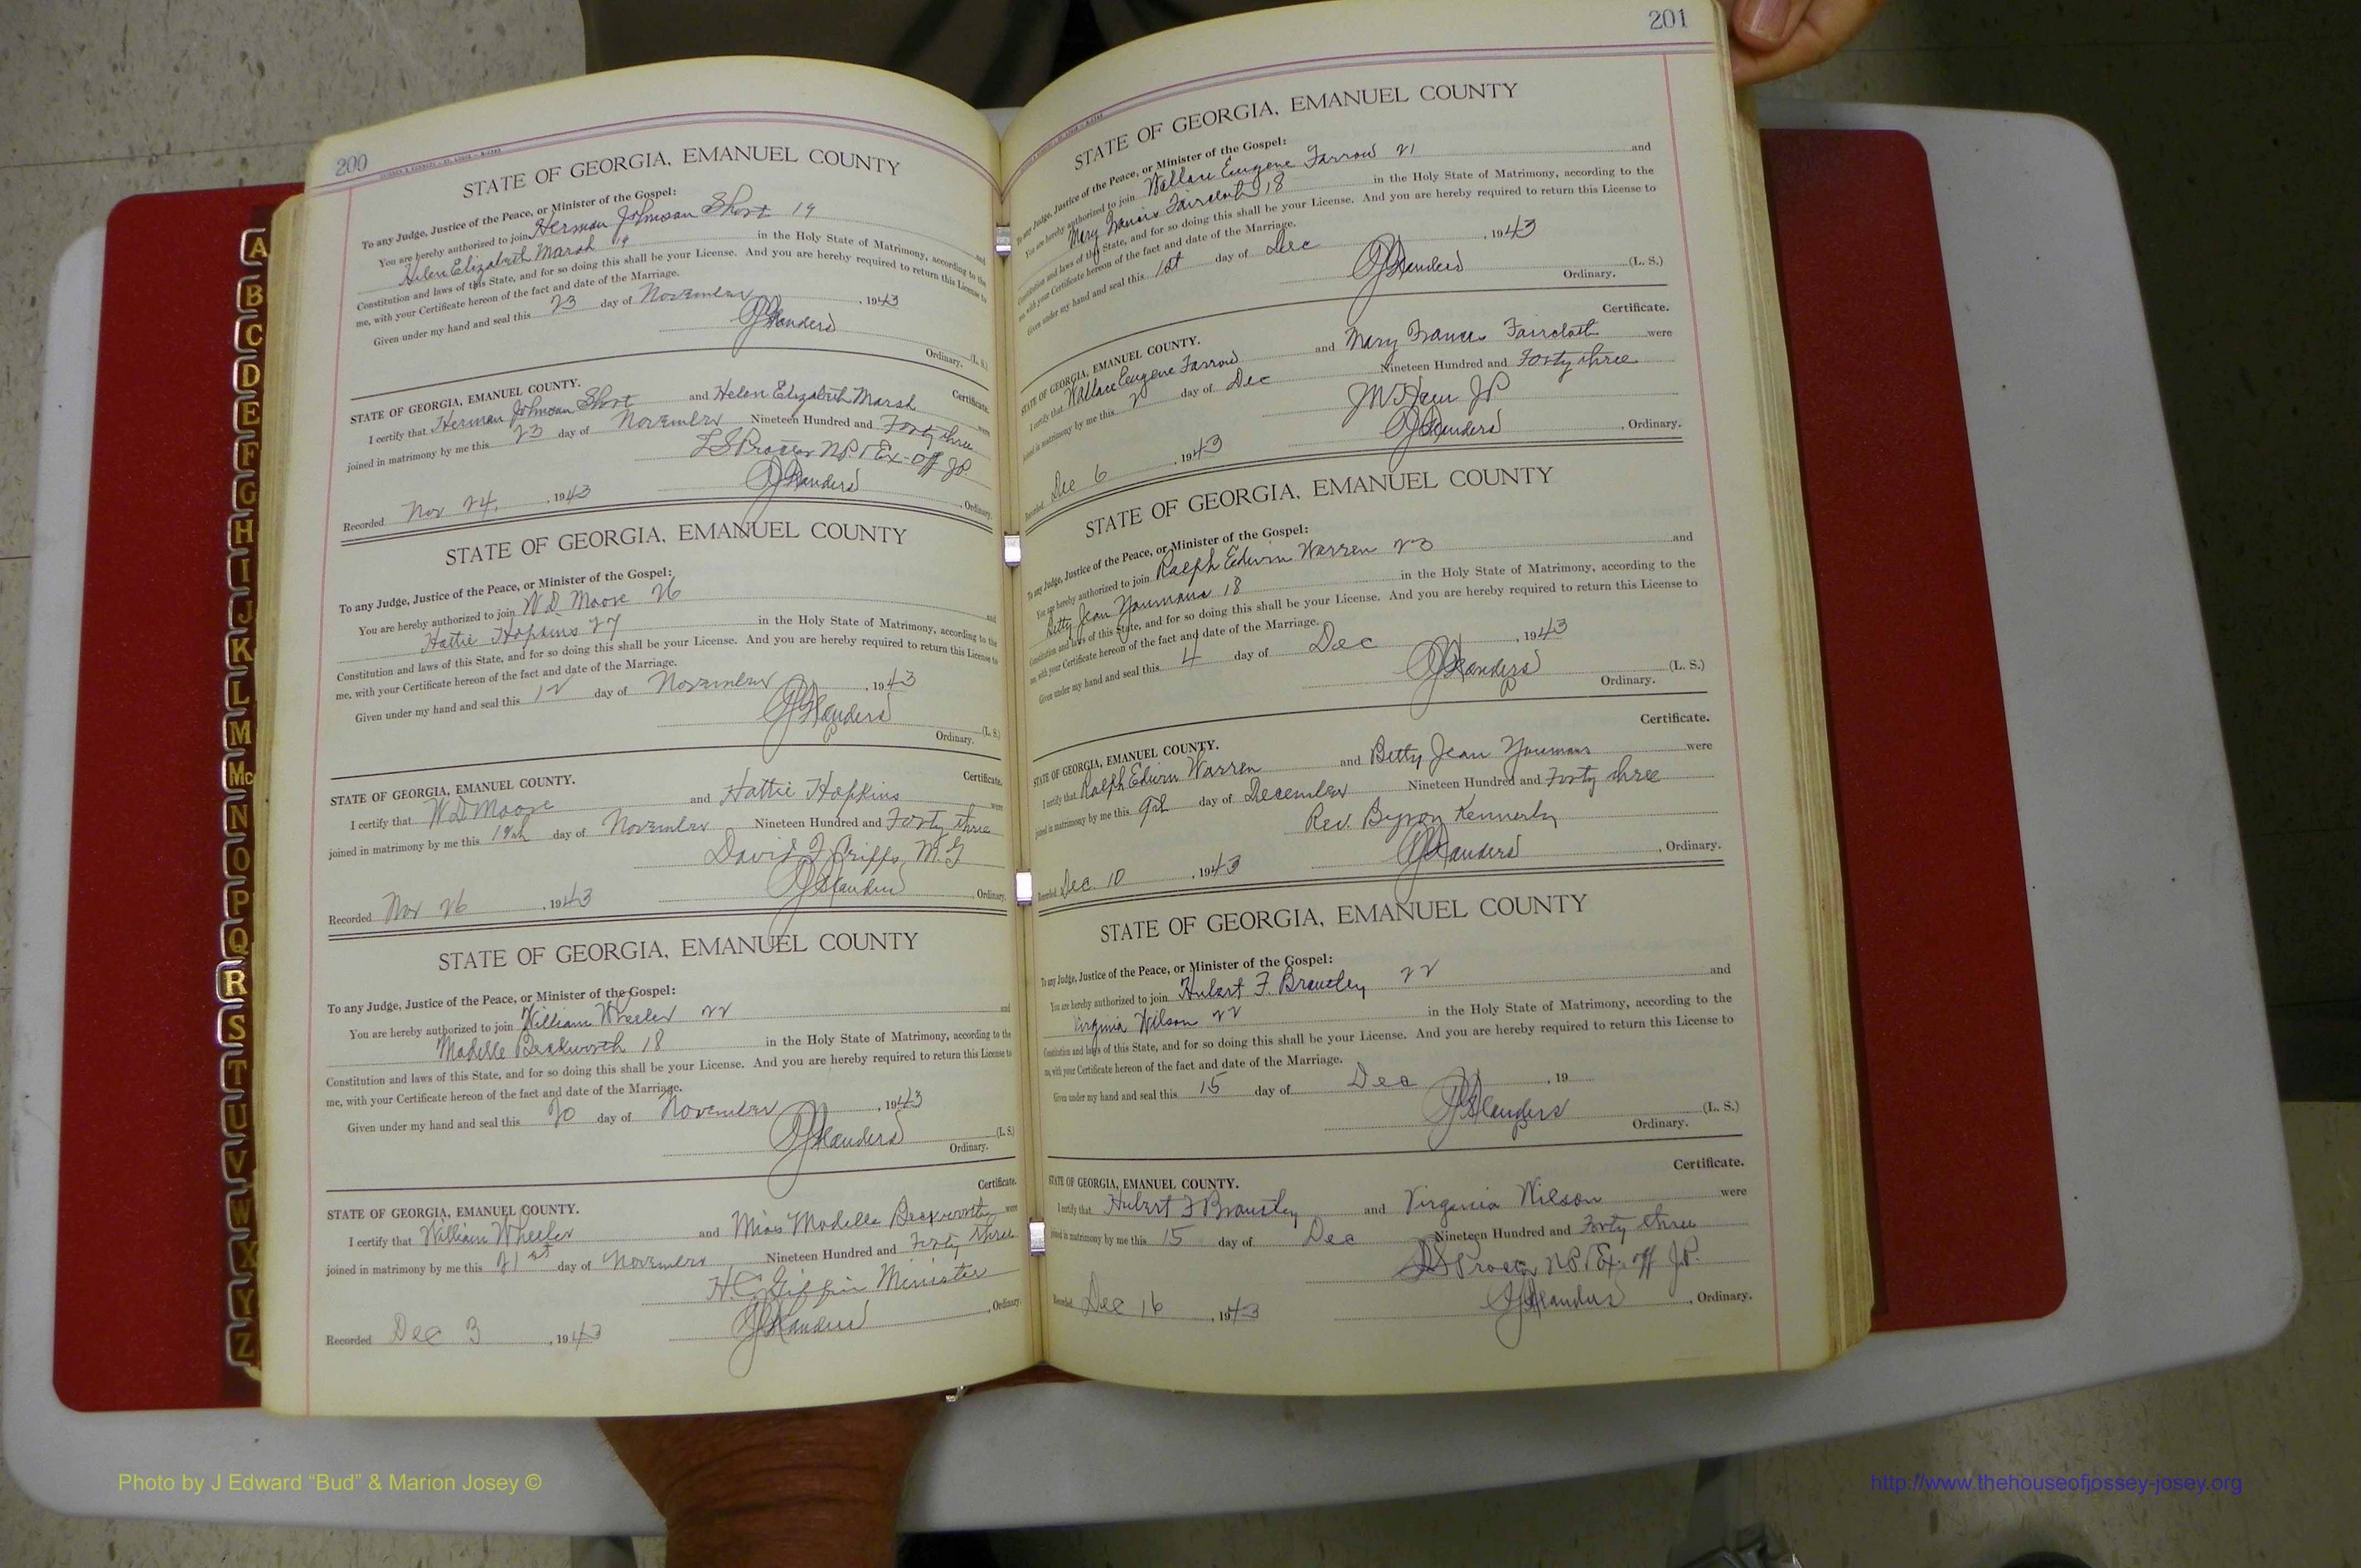 200
STATE OF GEORGIA, EMANUEL COUNTY
To any Judge, Justice of the Peace, or Minister of the Gospel:
You are hereby authorized to join Herman Johnson Short 19 and
Helen Elizabeth Marsh 19 in the Holy State of Matrimony, according to the
Constitution and laws of this State, and for so doing this shall be your License. And you are hereby required to return this License to
me, with your Certificate hereon of the fact and date of the Marriage.
Given under my hand and seal this 23 day of November, 1943
(L. S.)
Ordinary.
STATE OF GEORGIA, EMANUEL COUNTY. Certificate.
I certify that Herman Johnson Short and Helen Elizabeth Marsh were
joined in matrimony by me this 23 day of November Nineteen Hundred and Forty three
N.P. & Ex-Off J.P.
Recorded Nov 24, 1943 Ordinary.
STATE OF GEORGIA, EMANUEL COUNTY
To any Judge, Justice of the Peace, or Minister of the Gospel:
You are hereby authorized to join W D Moore 26 and
Hattie Hopkins 27 in the Holy State of Matrimony, according to the
Constitution and laws of this State, and for so doing this shall be your License. And you are hereby required to return this License to
me, with your Certificate hereon of the fact and date of the Marriage.
Given under my hand and seal this 12 day of November, 1943
(L. S.)
Ordinary.
STATE OF GEORGIA, EMANUEL COUNTY. Certificate.
I certify that W D Moore and Hattie Hopkins were
joined in matrimony by me this day of November Nineteen Hundred and Forty three
David M.G
Recorded Nov 26, 1943 Ordinary.
STATE OF GEORGIA, EMANUEL COUNTY
To any Judge, Justice of the Peace, or Minister of the Gospel:
You are hereby authorized to join William Wheeler 22 and
Madelle Beckworth 18 in the Holy State of Matrimony, according to the
Constitution and laws of this State, and for so doing this shall be your License. And you are hereby required to return this License to
me, with your Certificate hereon of the fact and date of the Marriage.
Given under my hand and seal this 20 day of November, 1943
(L. S.)
Ordinary.
STATE OF GEORGIA, EMANUEL COUNTY. Certificate.
I certify that William Wheeler and Miss Madelle Beckworth were
joined in matrimony by me this 21st day of November Nineteen Hundred and Forty three
Minister
Recorded Dec 3, 1943 Ordinary.
201
STATE OF GEORGIA, EMANUEL COUNTY
To any Judge, Justice of the Peace, or Minister of the Gospel:
You are hereby authorized to join Wallace Eugene Farrow 21 and
Mary Francis Faircloth 18 in the Holy State of Matrimony, according to the
Constitution and laws of this State, and for so doing this shall be your License. And you are hereby required to return this License to
me, with your Certificate hereon of the fact and date of the Marriage.
Given under my hand and seal this 1st day of Dec, 1943
(L. S.)
Ordinary.
Certificate.
STATE OF GEORGIA, EMANUEL COUNTY.
I certify that Wallace Eugene Farrow and Mary Frances Faircloth were
joined in matrimony by me this day of Dec Nineteen Hundred and Forty three
JP
Recorded Dec 6, 1943 Ordinary.
STATE OF GEORGIA, EMANUEL COUNTY
To any Judge, Justice of the Peace, or Minister of the Gospel:
You are hereby authorized to join Ralph Edwin Warren 23 and
Betty Jean Youmans 18 in the Holy State of Matrimony, according to the
Constitution and laws of this State, and for so doing this shall be your License. And you are hereby required to return this License to
me, with your Certificate hereon of the fact and date of the Marriage.
Given under my hand and seal this 4 day of Dec, 1943
(L. S.)
Ordinary.
Certificate.
STATE OF GEORGIA, EMANUEL COUNTY.
I certify that Ralph Edwin Warren and Betty Jean Youmans were
joined in matrimony by me this 9th day of December Nineteen Hundred and Forty three
Rev. Byron Kennerly
Recorded Dec. 10, 1943 Ordinary.
STATE OF GEORGIA, EMANUEL COUNTY
To any Judge, Justice of the Peace, or Minister of the Gospel:
You are hereby authorized to join Hubert F. Brantley 22 and
Virginia Wilson 22 in the Holy State of Matrimony, according to the
Constitution and laws of this State, and for so doing this shall be your License. And you are hereby required to return this License to
me, with your Certificate hereon of the fact and date of the Marriage.
Given under my hand and seal this 15 day of Dec, 19
(L. S.)
Ordinary.
Certificate.
STATE OF GEORGIA, EMANUEL COUNTY.
I certify that Hubert F Brantley and Virginia Wilson were
joined in matrimony by me this 15 day of Dec Nineteen Hundred and Forty three
NP & Ex-off J.P.
Recorded Dec 16, 1943 Ordinary.
A
B
C
D
E
F
G
H
I
J
K
L
M
Mc
N
O
P
Q
R
S
T
U
V
W
X
Y
Z
Photo by J Edward “Bud” & Marion Josey ©
http://www.thehouseofjossey-josey.org